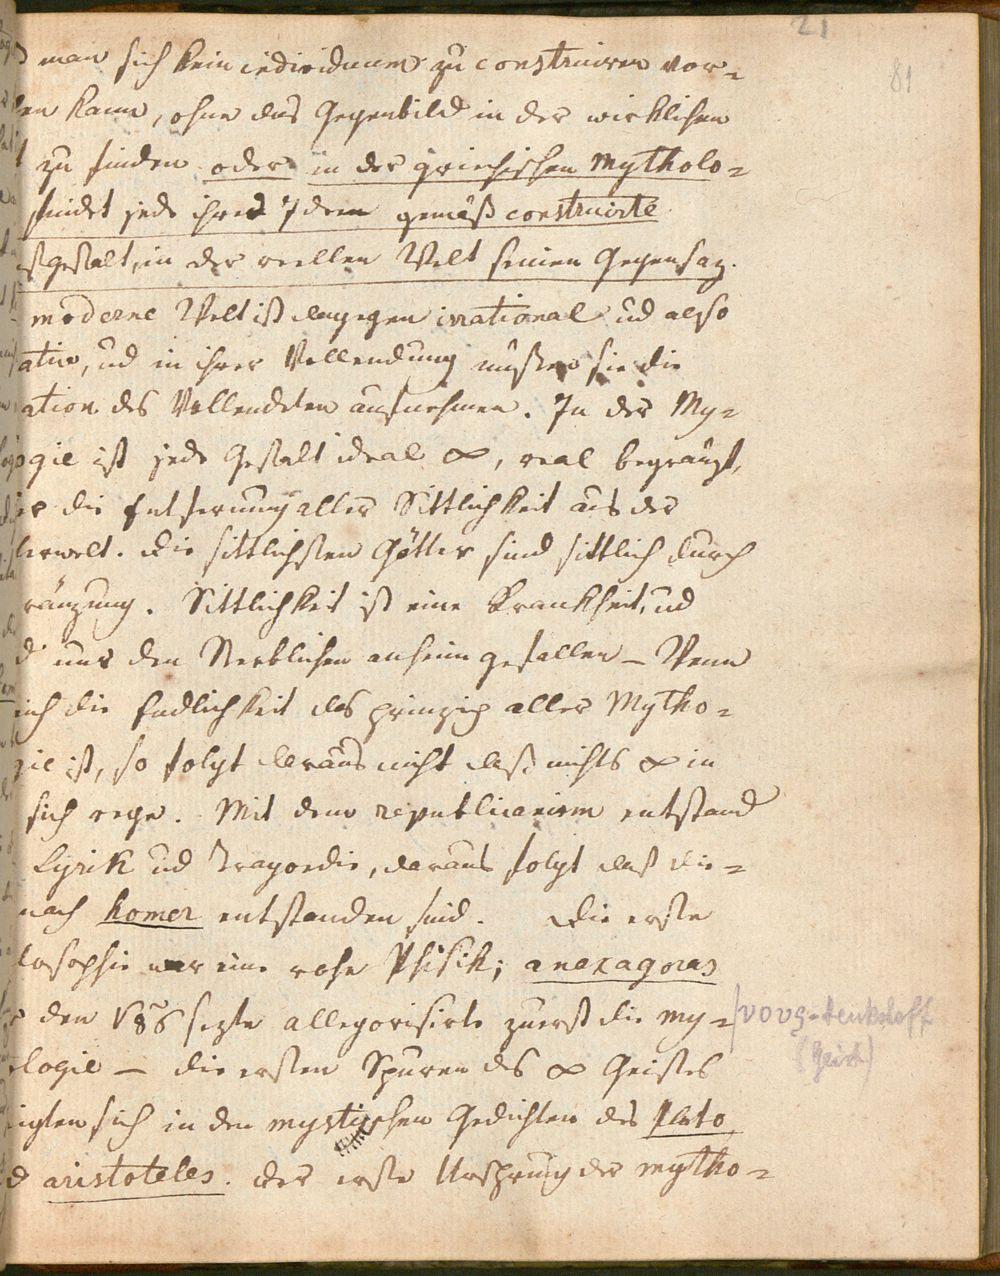 21
81
man sich kein individuum zu construiren vor-
len kann, ohne das Gegenbild in der wirklichen
zu finden oder in der griechischen Mytholo-
findet jede ihrer Ideen gemäß construirte
gestalt, in der reellen Welt seinen Gegensaz.
moderne Welt ist dagegen irrational ud also
ativ, ud in ihrer Vollendung müßte sie die
ation des Vollendeten aufnehmen. In der My-
ogie ist jede Gestalt ideal ∞, real begränzt,
er die Entfernung aller Sittlichkeit aus der
terwelt. die sittlichsten Götter sind sittlich durch
ränzung. Sittlichkeit ist eine Krankheit, ud
d uns den Sterblichen anheim gefallen – Wenn
ich die Endlichkeit das prinzip aller Mytho-
gie ist, so folgt daraus nicht daß nichts ∞ in
sich rege. Mit dem republicanism entstand
Lyrik ud Tragoedie, daraus folgt daß die-
nach homer entstanden sind. Die erste
losophie war eine rohe Phisik; anaxagoras
r den νοῦς sezte allegorisirte zuerst die my-
νους = denkstoff
(Geist)
ologie – die ersten Spuren des ∞ Geistes
igten sich in den mystischen Gedichten des Plato
d aristoteles. der erste Ursprung der mytho-